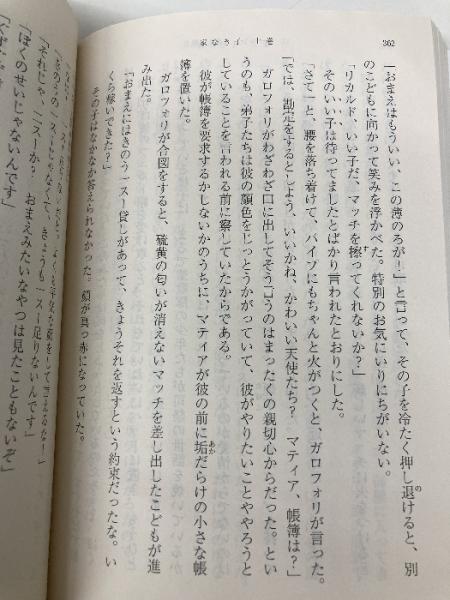 家なき子 上巻
362
「おまえはもういい、この薄のろが！」と言って、その子を冷たく押し退けると、別
のこどもに向かって笑みを浮かべた。特別のお気にいりにちがいない。
「リカルド、いい子だ、マッチを擦ってくれないか？」
そのいい子は待ってましたとばかり言われたとおりにした。
「さて」と、腰を落ち着けて、パイプにもちゃんと火がつくと、ガロフォリが言った。
「では、勘定をするとしよう、いいかね、かわいい天使たち？ マティア、帳簿は？」
ガロフォリがわざわざ口に出してそう言うのはまったくの親切心からだった。という
うのも、弟子たちは彼の顔色をじっとうかがっていて、彼がやりたいことややろうと
していることを言われる前に察していたからである。
彼が帳簿を要求するかしないかのうちに、マティアが彼の前に垢だらけの小さな帳
簿を置いた。
ガロフォリが合図をすると、硫黄の匂いが消えないマッチを差し出したこどもが進
み出た。
「おまえにはきのう一スー貸しがあって、きょうそれを返すという約束だったな。い
くら稼いできた？」
その子はなかなか答えられなかった。顔が真っ赤になっていた。
「一スー足りないんです」
「それじゃ、
じゃなくて、きょうも一スー足りないんです」
一スーか？ おまえみたいなやつは見たこともないぞ」
「ぼくのせいじゃないんです」